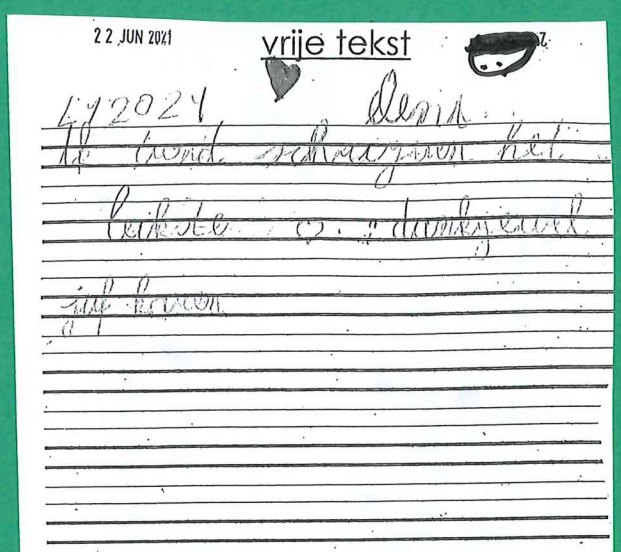 22 JUN 2021
vrije tekst
Ik vond schrijven het
leikste ♡. dankjewel
juf karen